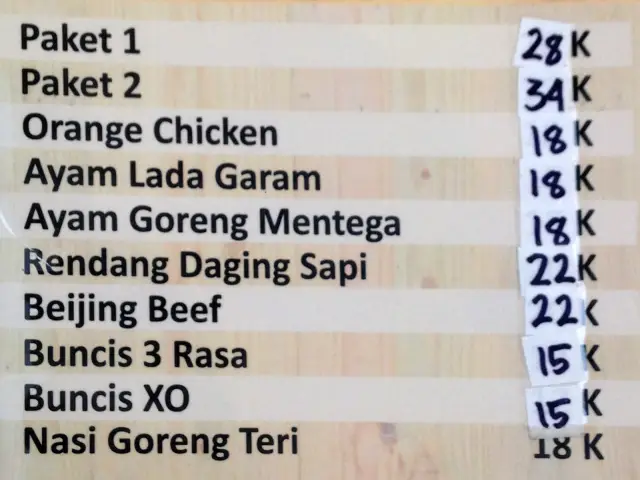 Paket 1 28 K
Paket 2 34 K
Orange Chicken 18 K
Ayam Lada Garam 18 K
Ayam Goreng Mentega 18 K
Rendang Daging Sapi 22 K
Beijing Beef 22 K
Buncis 3 Rasa 15 K
Buncis XO 15 K
Nasi Goreng Teri 18 K